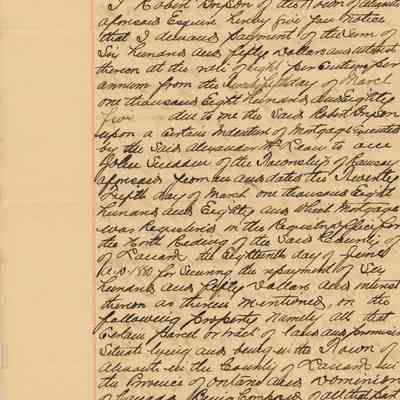 I Robert Simpson of the Town of Almonte
aforesaid Esquire hereby give you notice
that I demand payment of the sum of
Six hundred and fifty Dollars and interest
thereon at the rate of eight per centum per
annum from the twenty fifth day of March
one thousand Eight hundred and Eighty
five due to me the said Robert Simpson
upon a certain Indenture of Mortgage executed
by the said Alexander McLean to one
John Sneddon of the Township of Ramsay
aforesaid from me and dated the Twenty
fifth day of March one thousand Eight
hundred and Eighty and which Mortgage
was Registered in the Registry office for
the North Riding of the said County of
of Lanark the Eighteenth day of June
A.D. 1880 for securing the repayment of Six
hundred and fifty Dollars and interest
thereon as therein mentioned, on the
following Property Namely all that
Certain parcel or tract of land and premises
Situate lying and being in the Town of
Almonte in the County of Lanark in
the Province of Ontario and Dominion
of Canada Being Composed of all that part